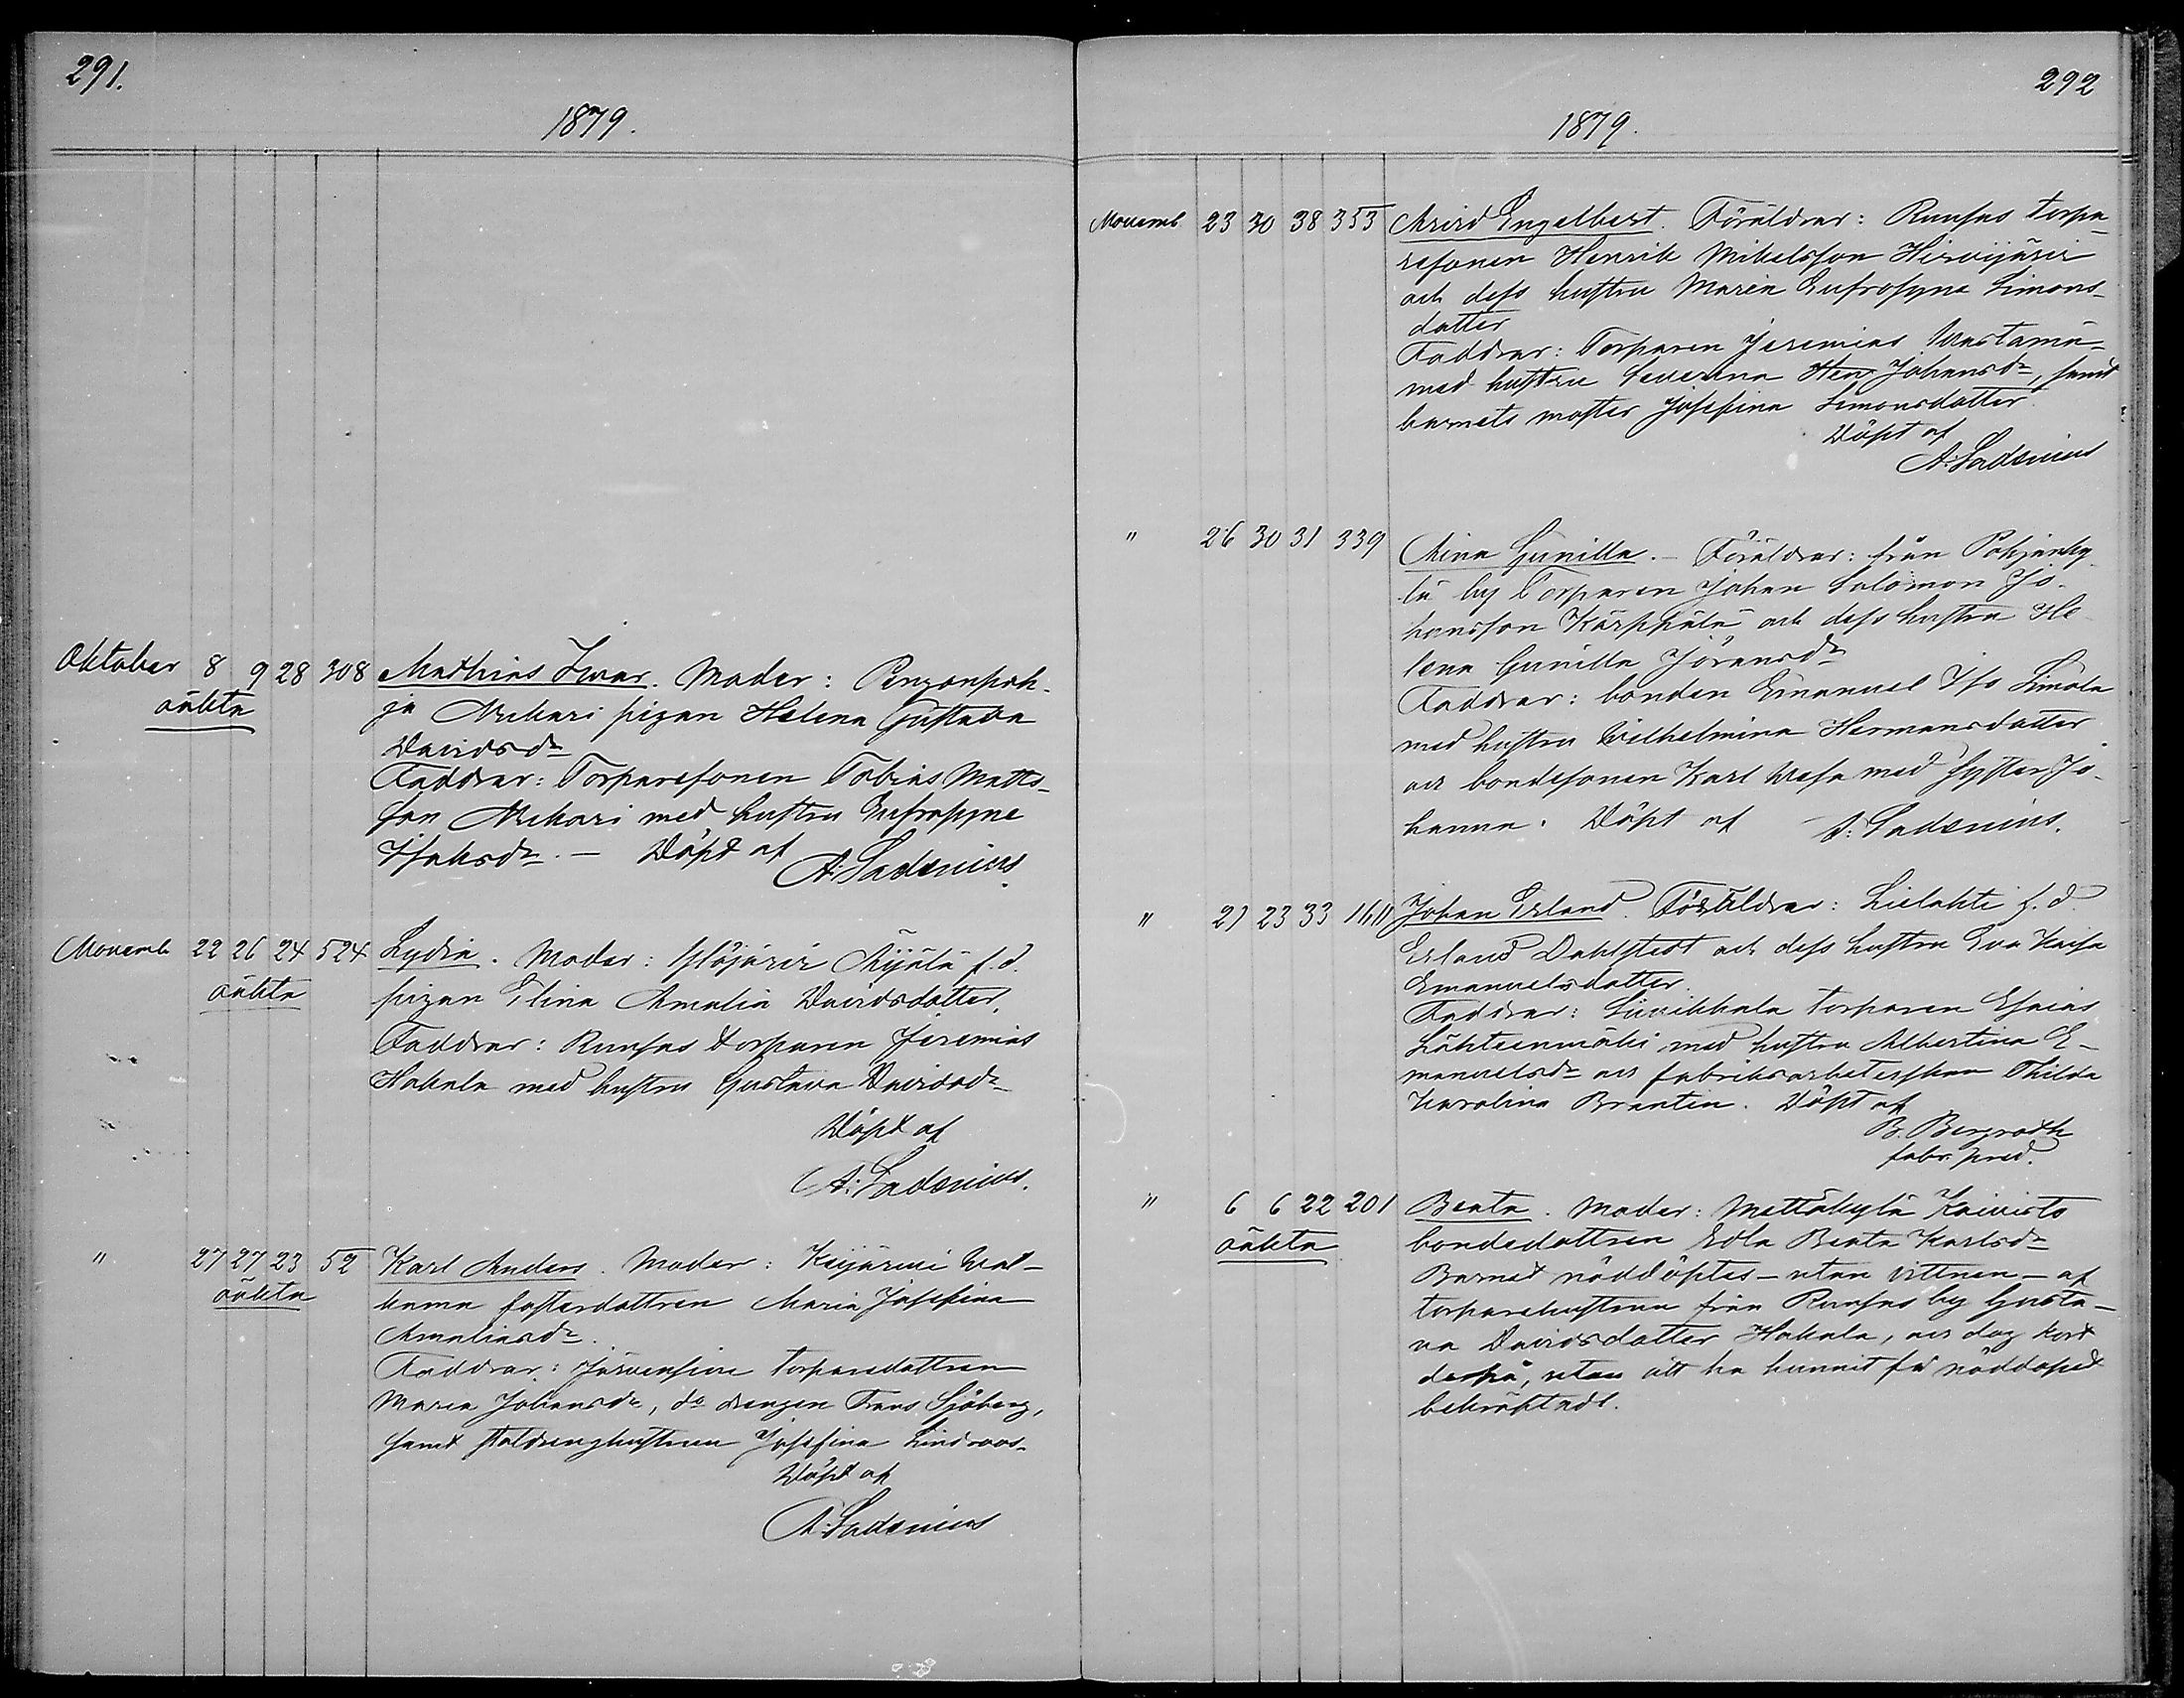 291.
1879.
Oktober 8 9 28 308 Mathias Iwar. Moder: Penzonpoh-
oäkta
ja Mikari pigan Helena Gustava
Davidsdr
Faddrar: Torparesonen Tobias Matts-
son Mikari med hustru Eufrosyne
Isaksdr. — Döpt af
A. Ladenius
Novemb 22 26 24 524 Lydia. Moder: Ylöjärvi Äijälä f. d.
oäkta
pigan Elina Amalia Davidsdotter.
Faddrar: Runsas torparen Jeremias
Hakala med hustru Gustava Davidsdr
Döpt af
A. Ladenius.
" 27 27 23 52 Karl Anders. Moder: Keijärvi Wal-
oäkta
kama fosterdottren Maria Josefina
Amaliasdr.
Faddrar: Järvensivu torparedottren
Maria Johansdr, do drengen Frans Sjöberg,
samt staldrenghustrun Josefina Lindroos.
Döpt af
A. Ladenius
292
1879.
Novemb 23 30 38 353 Arvid Engelbert. Föräldrar: Runsas torpa-
resonen Henrik Mikelsson Hirvijärvi
och dess hustru Maria Eufrosyne Simons-
dotter
Faddrar: Torparen Jeremias
med hustru Severina Hen Johansdr, samt
barnets moster Josefina Simonsdotter.
Döpt af
A. Ladenius
" 26 30 31 339 Mina Gunilla. — Föräldrar: från Pohjanky-
lä by Torparen Johan Salomon Jo-
hansson Kärppälä och dess hustru He-
lena Gunilla Jöransdr
Faddrar: bonden Emanuel Iso Simola
med hustru Wilhelmina Hermansdotter
och bondesonen Karl Wesa med syster Jo-
hanna. Döpt af A. Ladenius.
" 21 23 33 1611 Johan Erland. Föräldrar: Lielahti f. d.
Erland Dahlstedt och dess hustru Eva Kaisa
Emanuelsdotter.
Faddrar: Siivikkala torparen Esaias
Lähteenmäki med hustru Albertina E-
manuelsdr och fabriksarbeterskan Thilda
Karolina Branten. Döpt af
B. Bergroth
fabr. pred.
" 6 6 22 201 Beata. Moder: Mattäkylä Koivisto
oäkta
bondedottren Edla Beata Karlsdr
Barnet nöddöptes — utan vittnen — af
torparehustrun från Runsas by Gusta-
va Davidsdotter Hakala, och dog kort
derpå, utan att ha hunnit få nöddopet
bekräftadt.